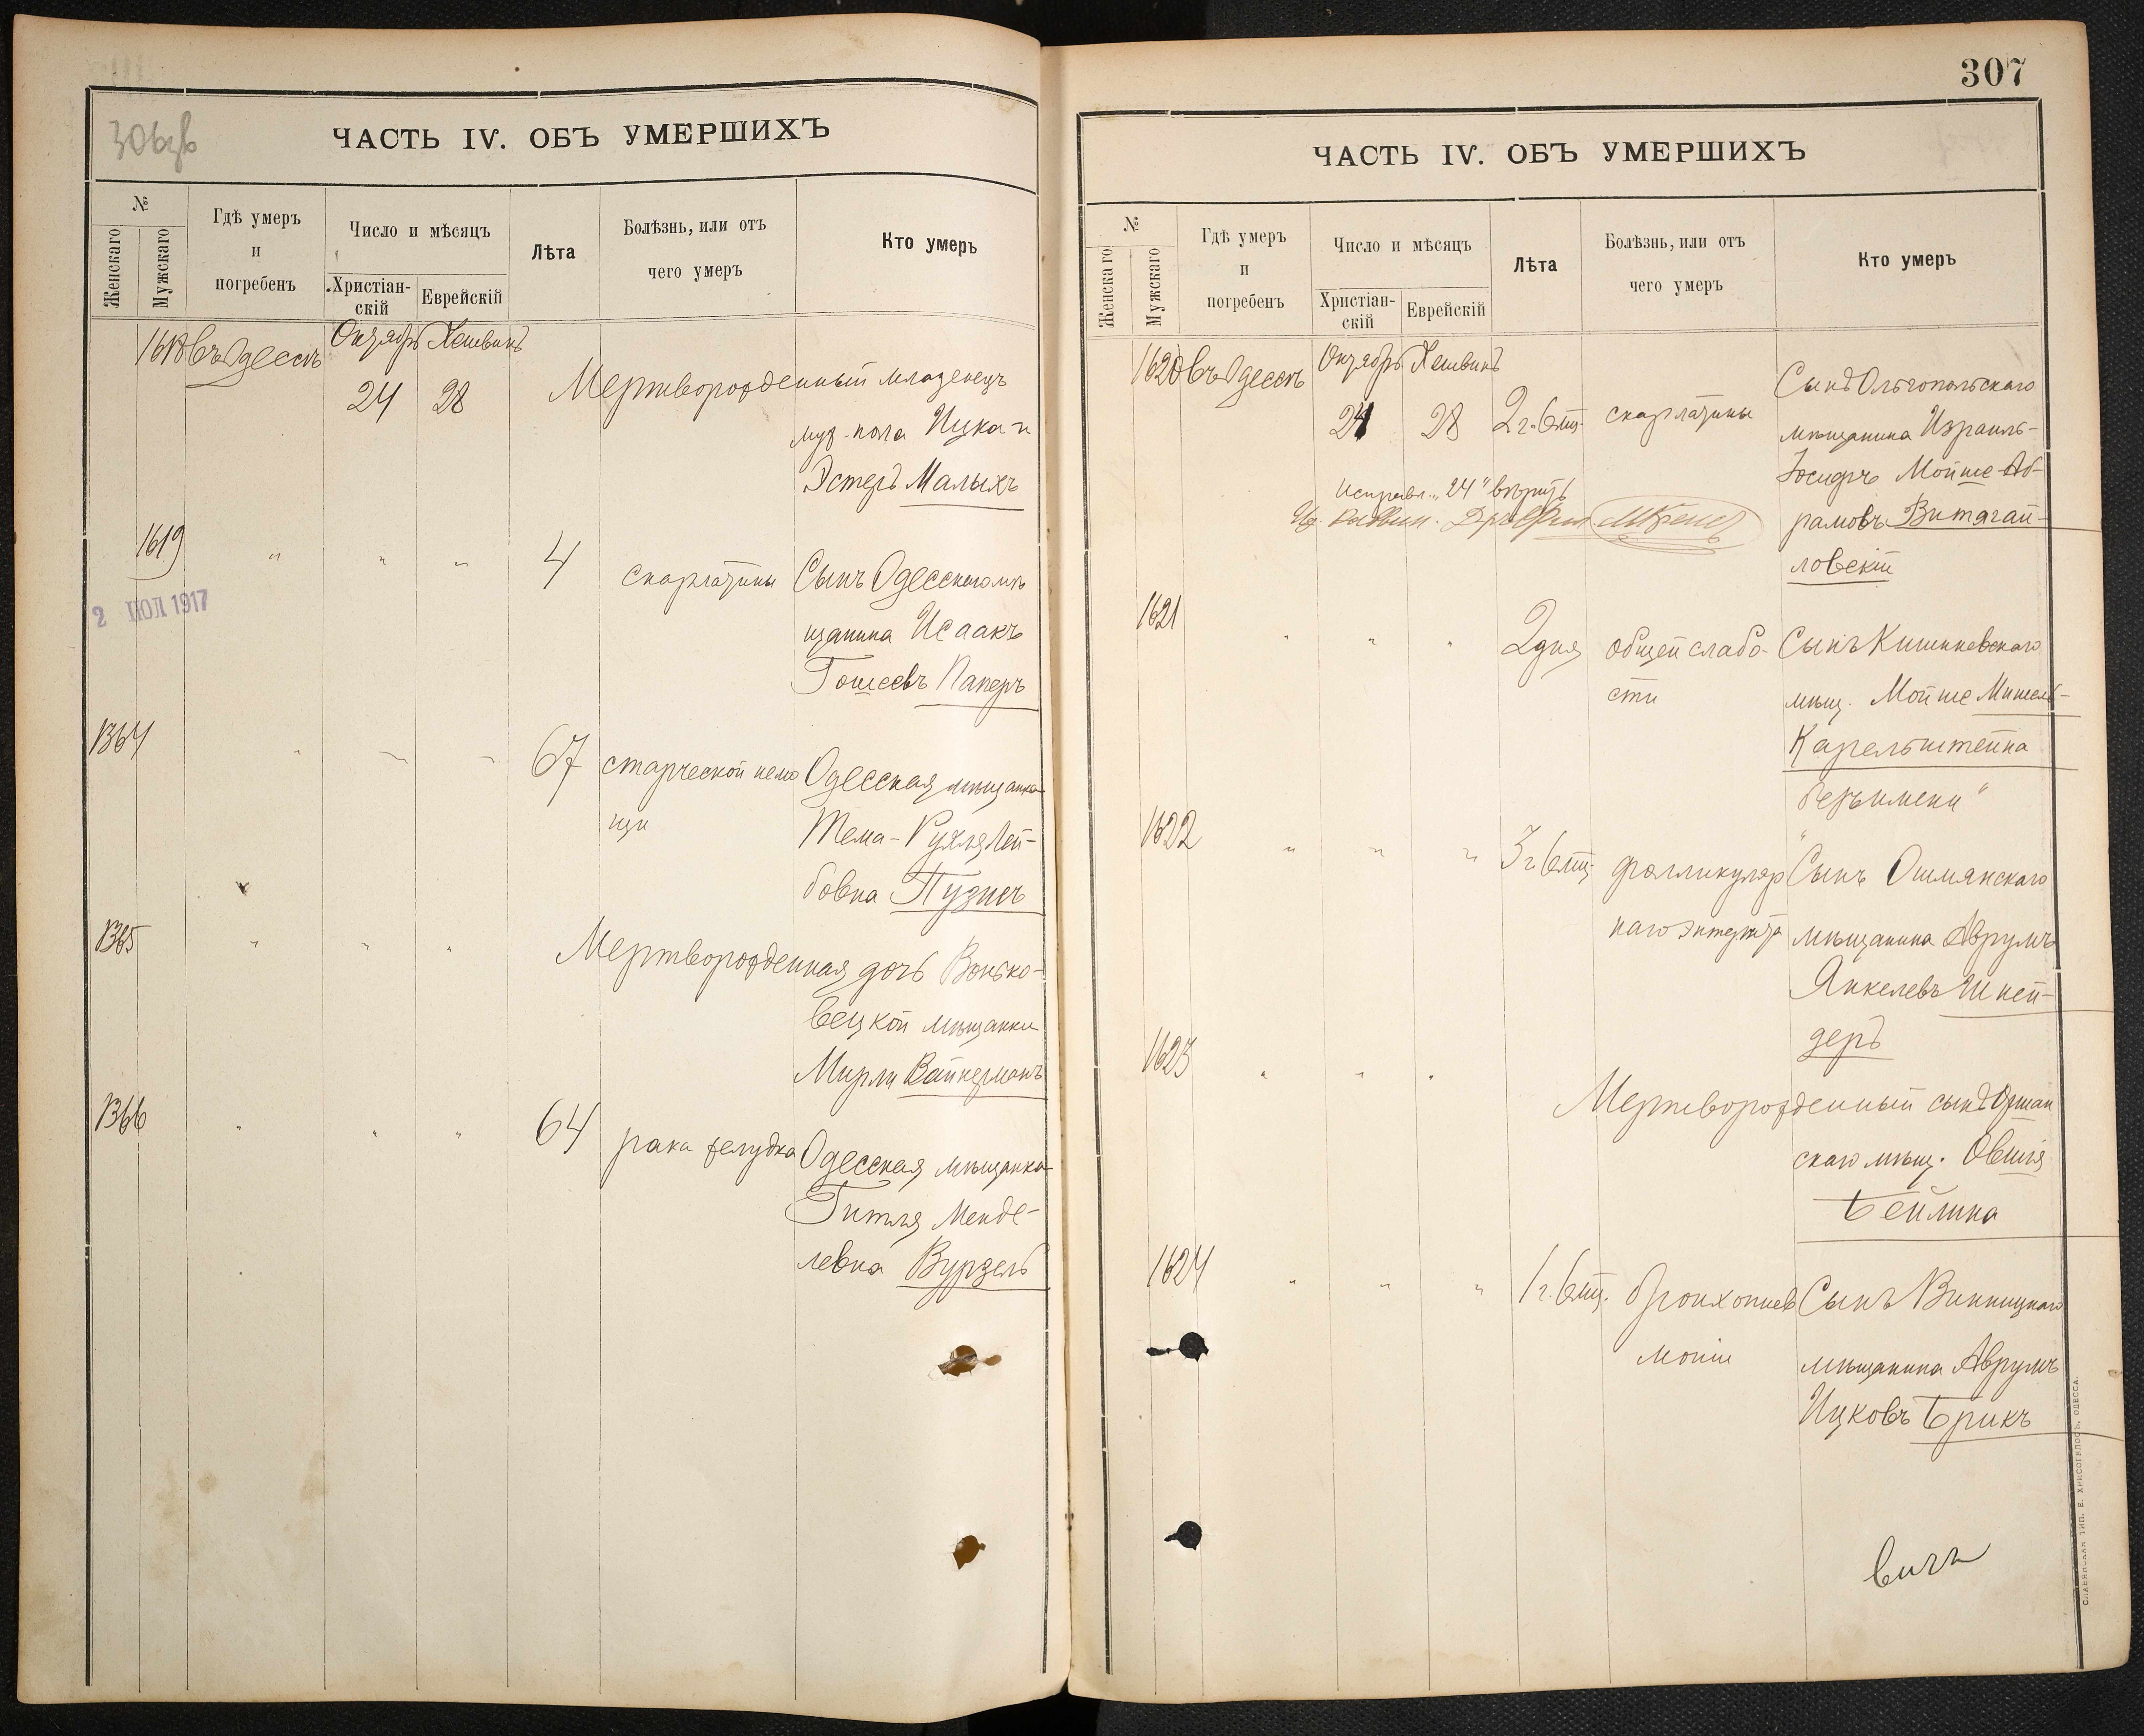 306об
ЧАСТЬ IV. ОБЪ УМЕРШИХЪ
№
Женскаго
Мужскаго
Гдѣ умеръ
и
погребенъ
Число и мѣсяцъ
Христіан-
скій
Еврейскій
Лѣта
Болѣзнь, или отъ
чего умеръ
Кто умеръ
1618 въ Одессѣ Октябрь Хешвинъ
24 28 Мертворожденный младенецъ
муж. пола Ицка и
Эстеръ Малыхъ
1619 " " " 4 скарлатины Сынъ Одесскаго мѣ
щанина Исаакъ
Гошеевъ Паперъ
2 ИЮЛ 1917
1364 " " " 67 старческой немо Одесская мѣщанка
щи Тема-Рухля Лей-
бовна Пузисъ
1365 " " " Мертворожденная дочь Вонько-
вецкой мѣщанки
Мирли Вайнерманъ
1366 " " " 64 рака желудка Одесская мѣщанка
Гитля Менде-
левна Вурзель
307
ЧАСТЬ IV. ОБЪ УМЕРШИХЪ
№
Женскаго
Мужскаго
Гдѣ умеръ
и
погребенъ
Число и мѣсяцъ
Христіан-
скій
Еврейскій
Лѣта
Болѣзнь, или отъ
чего умеръ
Кто умеръ
1620 въ Одессѣ Октябрь Хешвинъ
24 28 2 г. 6 мц. скарлатины Сынъ Ольгопольскаго
мѣщанина Израиль-
Іосифъ Мойше-Аб-
Исправл. "24" вѣрить
рамовъ Витягай-
ловскій
1621 " " " 2 дня общей слабо- Сынъ Кишиневскаго
сти мѣщ. Мойше Мишель-
Карельштейна
"безъ имени"
1622 " " " 3 г. 6 мц. фолликуляр Сынъ Ошмянскаго
наго энтерита мѣщанина Аврумъ
Янкелевъ Шней-
деръ
1623 " " " Мертворожденный сынъ Оршан
скаго мѣщ. Овшія
Бейлина
1624 " " " 1 г. 6 мц. бронхопнев Сынъ Винницкаго
моніи мѣщанина Аврумъ
Ицковъ Брикъ
вичъ
СЛАВЯНСКАЯ ТИП. Е. ХРИСОГЕЛОСЪ, ОДЕССА.